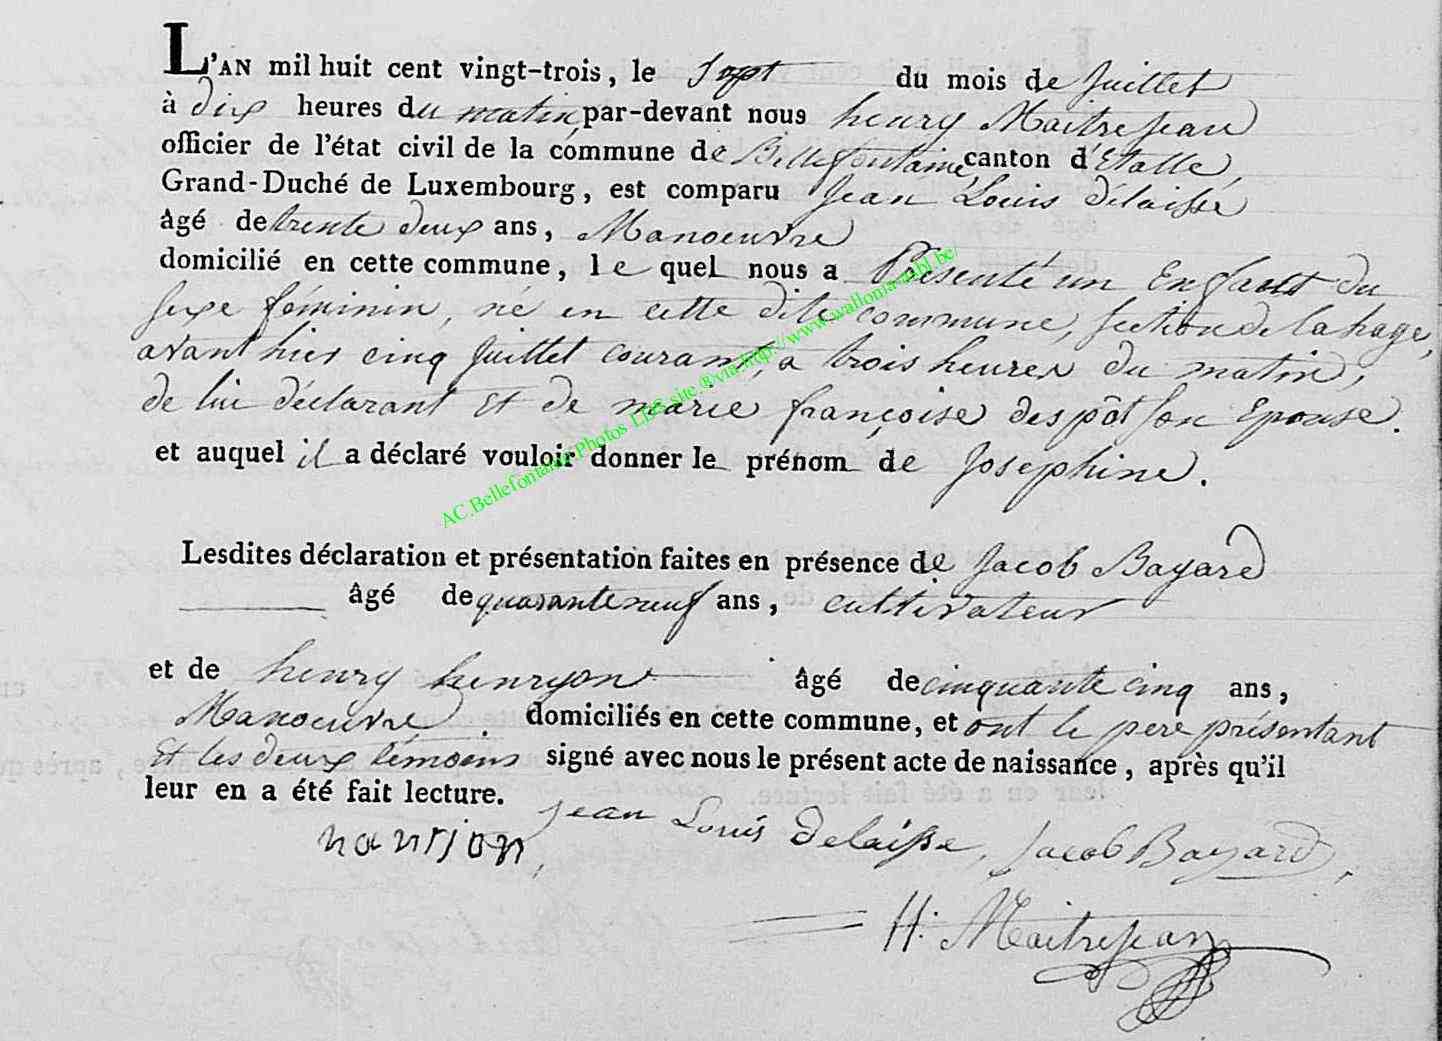 L'AN mil huit cent vingt-trois, le Sept du mois de Juillet
à dix heures du matin par-devant nous henry Maitrejean
officier de l'état civil de la commune de Bellefontaine, canton d'Etalle,
Grand-Duché de Luxembourg, est comparu Jean Louis délaisse
âgé de trente deux ans, Manoeuvre
domicilié en cette commune, le quel nous a Présenté un Enfant du
sexe féminin, né en cette dite commune, section de lahage,
avant hier cinq Juillet courant, a trois heures du matin,
de lui déclarant Et de marie françoise despôt son Epouse.
et auquel il a déclaré vouloir donner le prénom de Josephine.
AC.Bellefontaine Photos LDS site.®via http://www.wallonia-mbl.be/
Lesdites déclaration et présentation faites en présence de Jacob Bayard
âgé de quarante neuf ans, cultivateur
et de henry henryon âgé de cinquante cinq ans,
Manoeuvre domiciliés en cette commune, et ont le pere présentant
Et les deux témoins signé avec nous le présent acte de naissance, après qu'il
leur en a été fait lecture.
Jean Louis Delaisse, Jacob Bayard,
H. Maitrejean